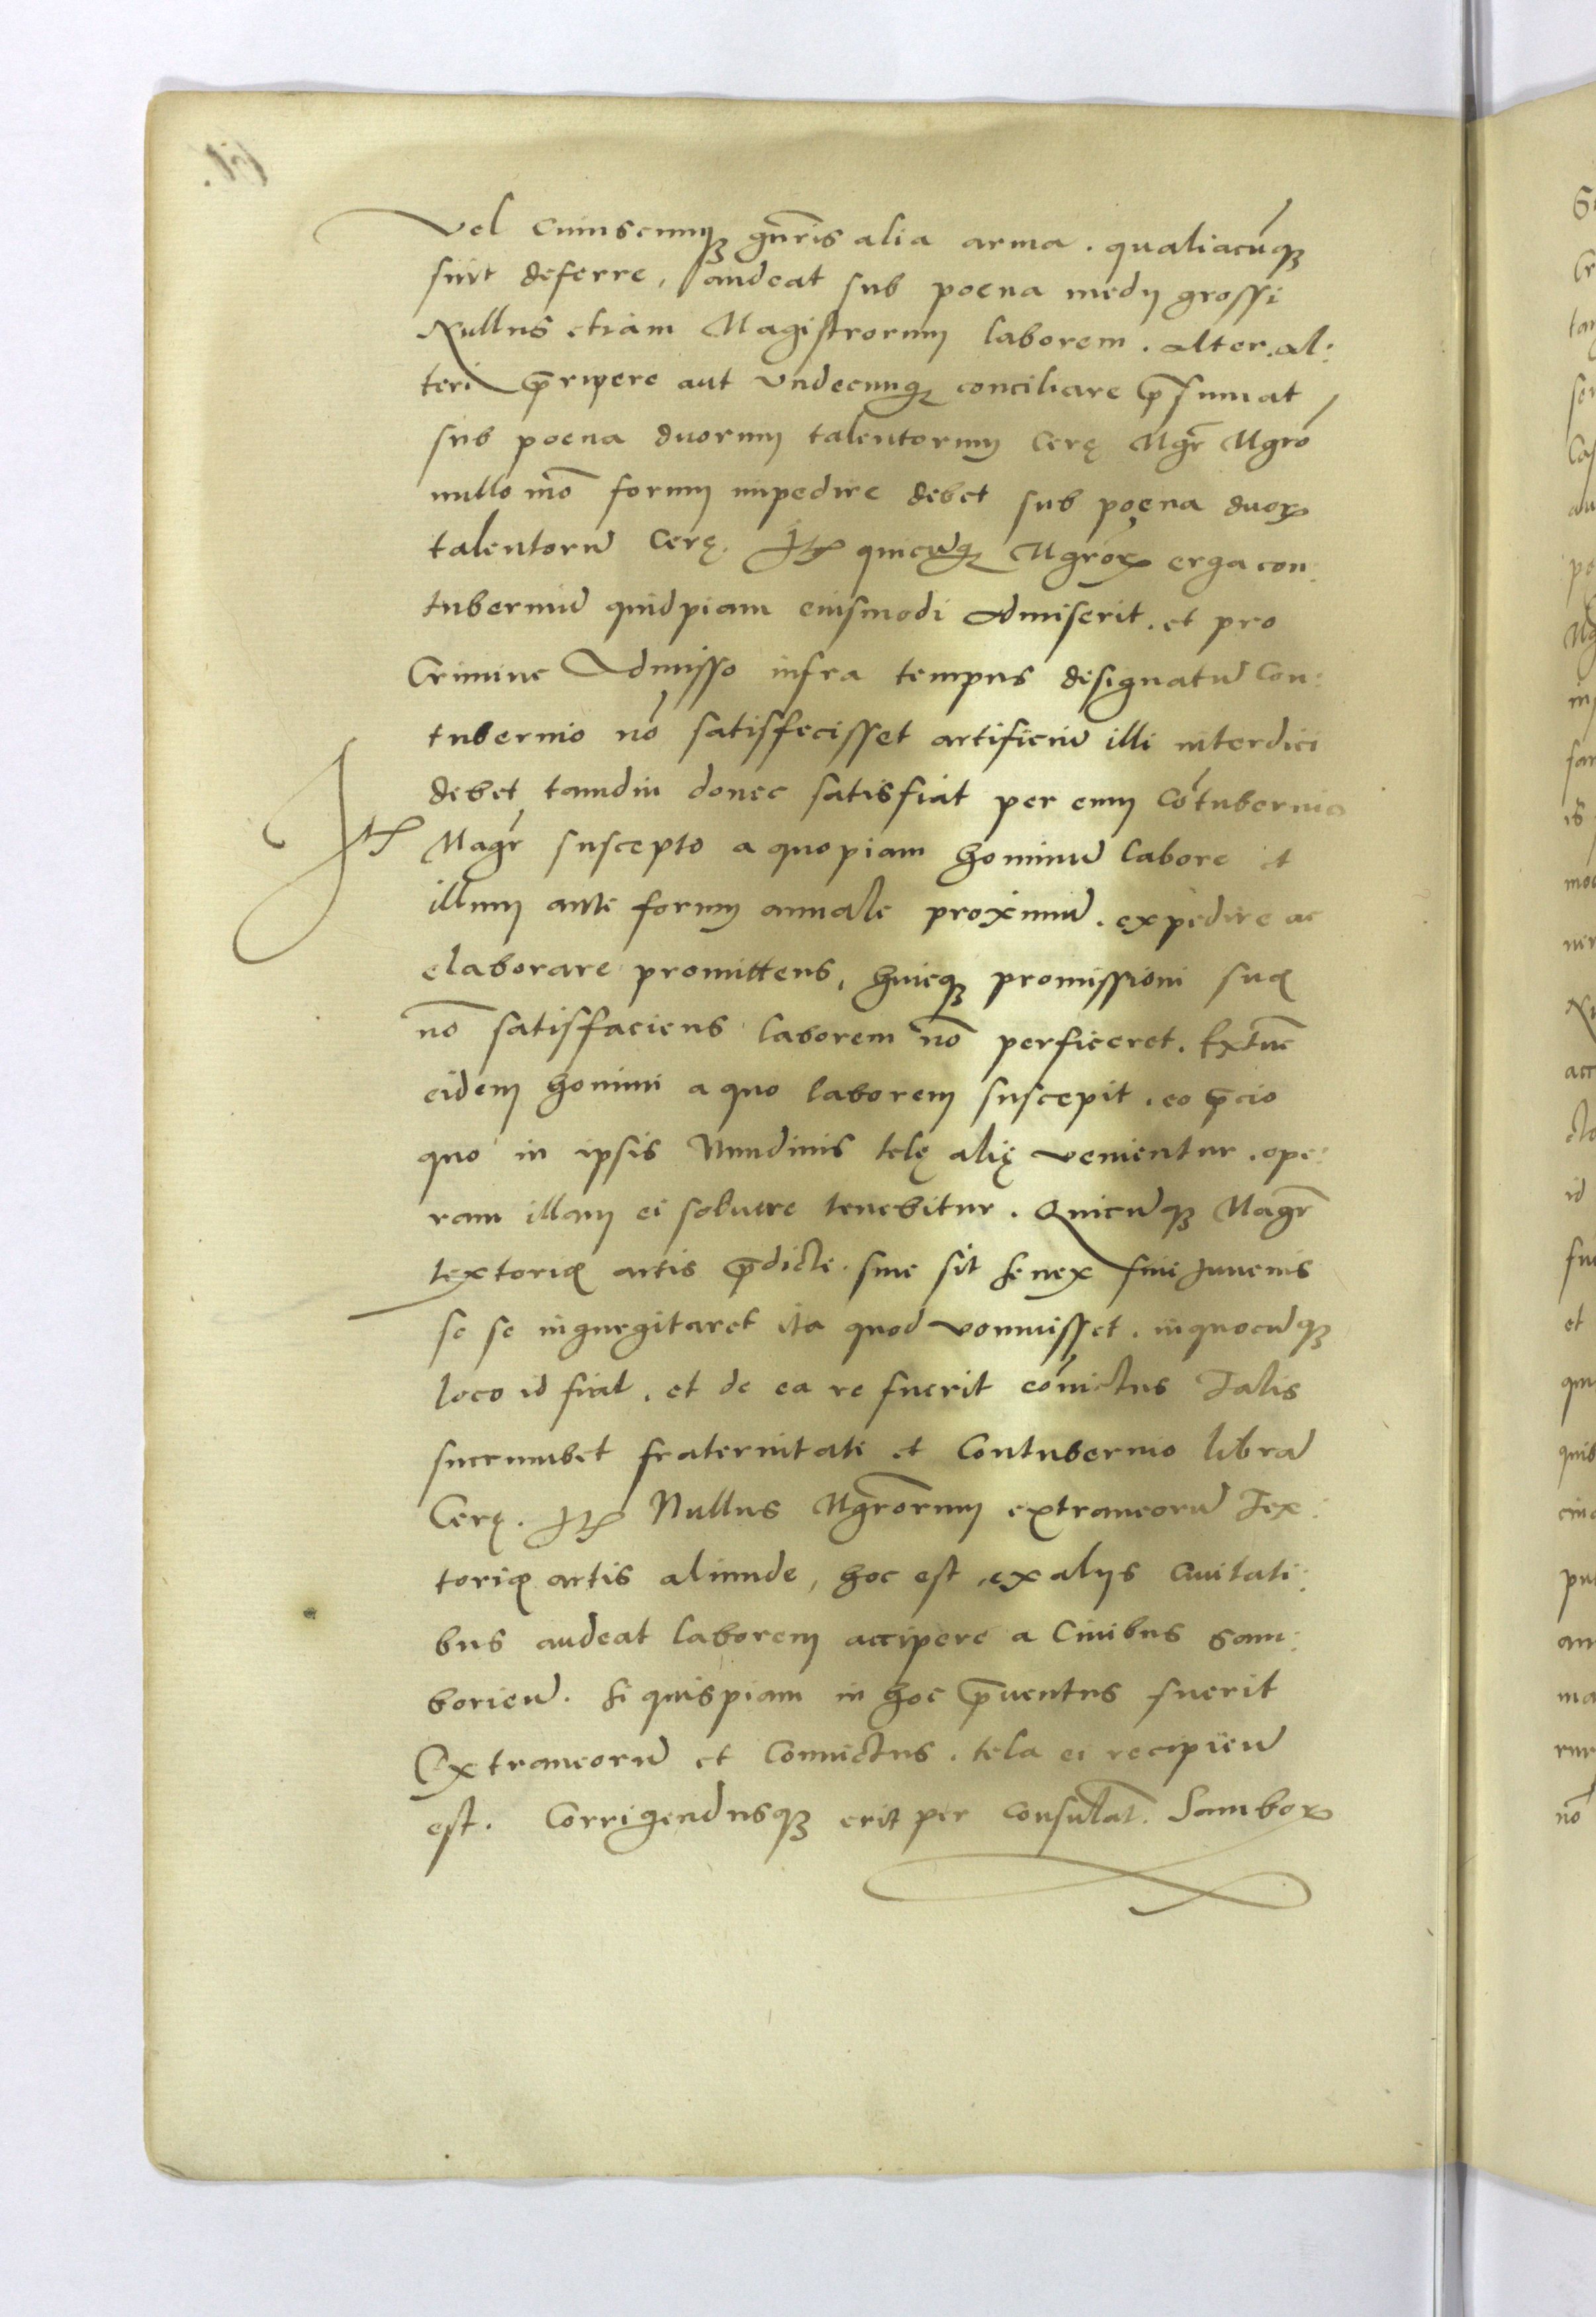 Vel cuiuscunqꝫ gn̄ris alia arma. qualiacūqꝫ
sint deferre, audeat sub poena medij grossi
Nullus etiam Magistrorum laborem. alter al:
teri p̄ripere aut vndecunqꝫ conciliare p̄sumat
sub poena duorum talentorum cerę Mgr̄ Mgrō
nullo mō forum impedire debet sub poena duoꝝ
talentorū cerę. Itꝫ quicūqꝫ Mgrōꝝ erga con:
tuberniū quidpiam eiusmodi admiserit. et pro
Crimine Admisso infra tempus designatū Con:
tubernio nō satisfecisset artificiū illi interdici
debet tamdiu donec satisfiat per eum Cōtubernio
Itꝫ Magr̄ suscepto a quopiam hominū labore et
illum ante forum annale proximū. expedire ac
elaborare promittens, huicqꝫ promissioni suę
nō satisfaciens laborem nō perficeret. Extūc
eidem homini a quo laborem suscepit. eo p̄cio
quo in ipsis Nundinis telę alię venientur. ope:
ram illam ei soluere tenebitur. Quicūqꝫ Magr̄
textorię artis p̄dicte. siue sit senex siue Iuuenis
se se ingurgitaret ita quod vomuisset. in quocūqꝫ
loco id fiat. et de ea re fuerit cōuictus Talis
succumbet fraternitati et Contubernio librā
Cerę. Itꝫ Nullus Mgrōrum extraneorū Tex:
torię artis aliunde, hoc est, ex alijs Ciuitati:
bus audeat laborem accipere a Ciuibus Sam:
borieū. Si quispiam in hoc p̄uentus fuerit
Extraneorū et Conuictus. tela ei recipieū
est. Corrigendusqꝫ erit per Consulat̄. Samboꝝ